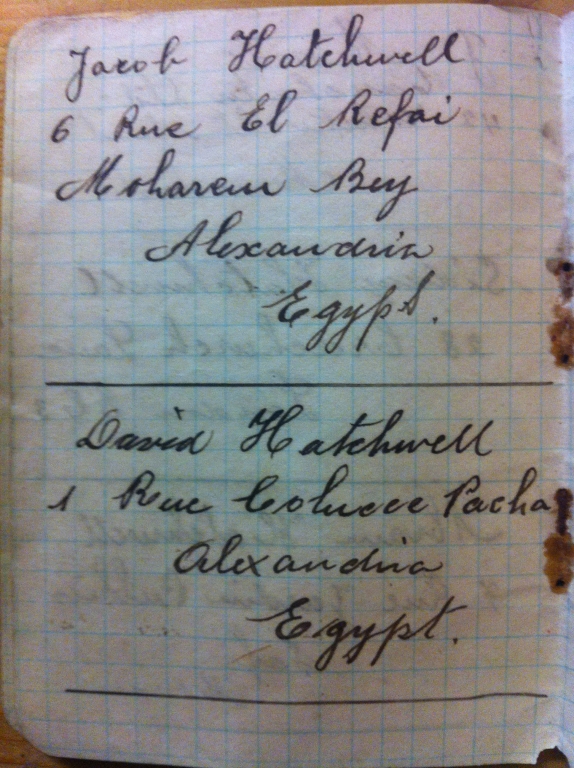 Jacob Hatchwell
6 Rue El Refai
Moharem Bey
Alexandria
Egypt.
David Hatchwell
1 Rue Colucce Pacha
Alexandria
Egypt.